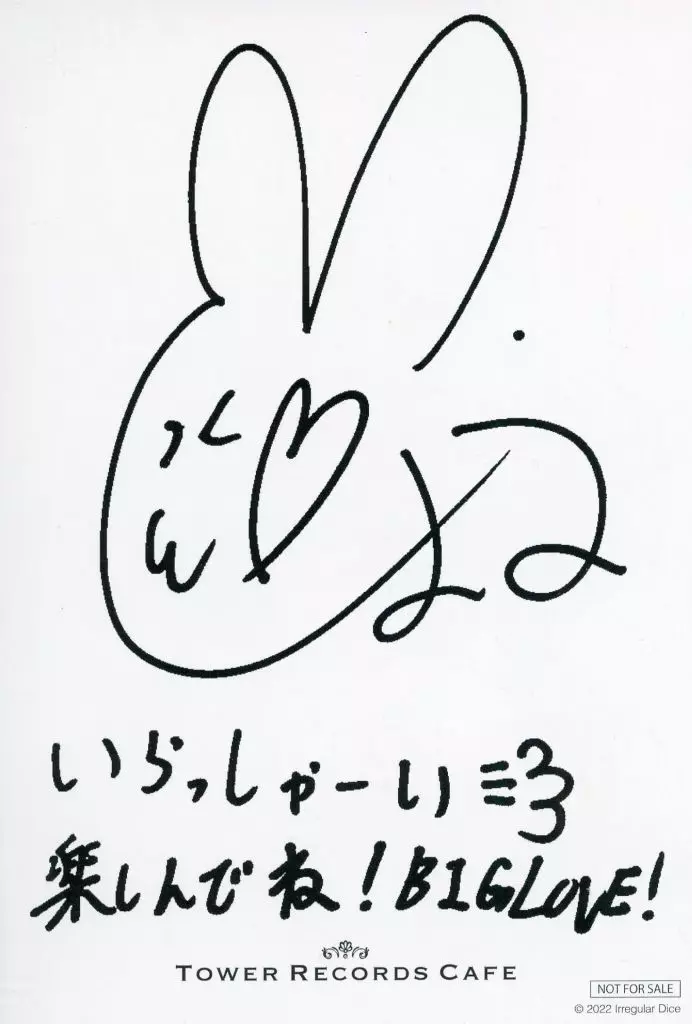 いらっしゃーい
楽しんでね！BIG LOVE！
TOWER RECORDS CAFE
NOT FOR SALE
© 2022 Irregular Dice